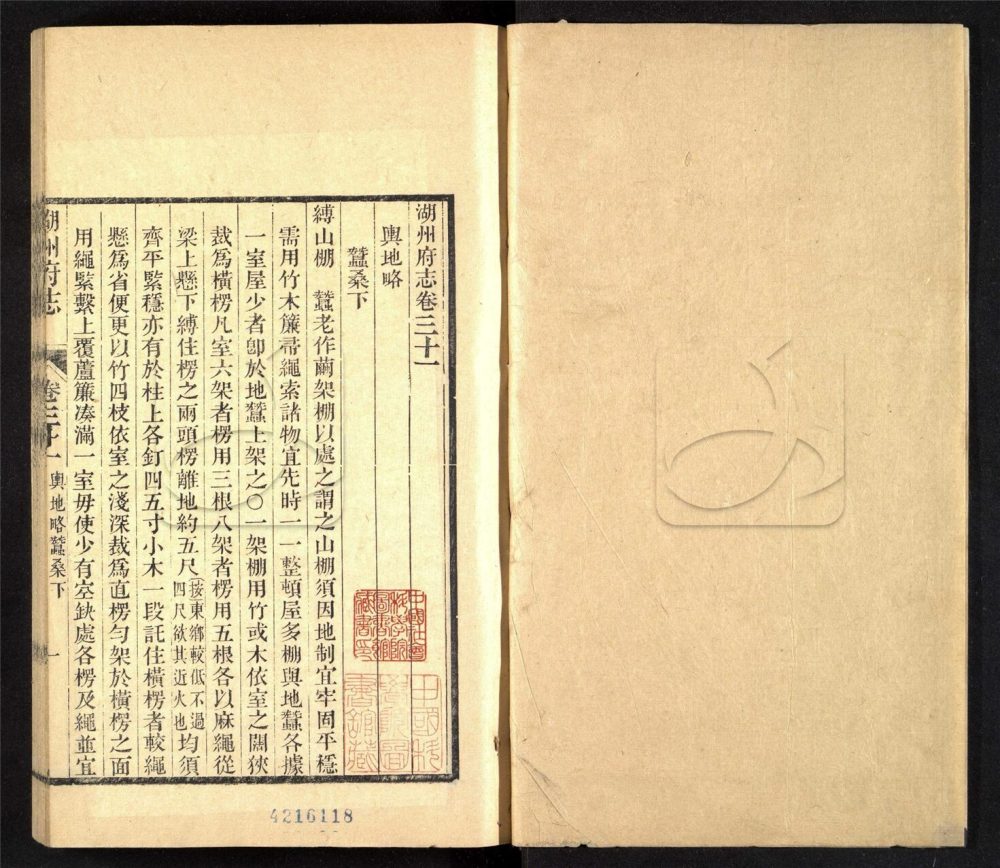 湖州府志卷三十一
輿地略
蠶桑下
縛山棚　蠶老作繭架棚以處之謂之山棚須因地制宜牢固平穩
需用竹木簾箔繩索諸物宜先時一一整頓屋多棚與地蠶各據
一室屋少者卽於地蠶上架之○一架棚用竹或木依室之闊狹
裁爲橫楞凡室六架者楞用三根八架者楞用五根各以麻繩從
梁上懸下縛住楞之兩頭楞離地約五尺按東鄉較低不過四尺欲其近火也均須
齊平緊穩亦有於柱上各釘四五寸小木一段託住橫楞者較繩
懸爲省便更以竹四枝依室之淺深裁爲直楞勻架於橫楞之面
用繩緊繫上覆蘆簾凑滿一室毋使少有空缺處各楞及繩並宜
湖州府志　卷三十一　輿地略　蠶桑下　一
中國社會科學院圖書館藏書印
4216118